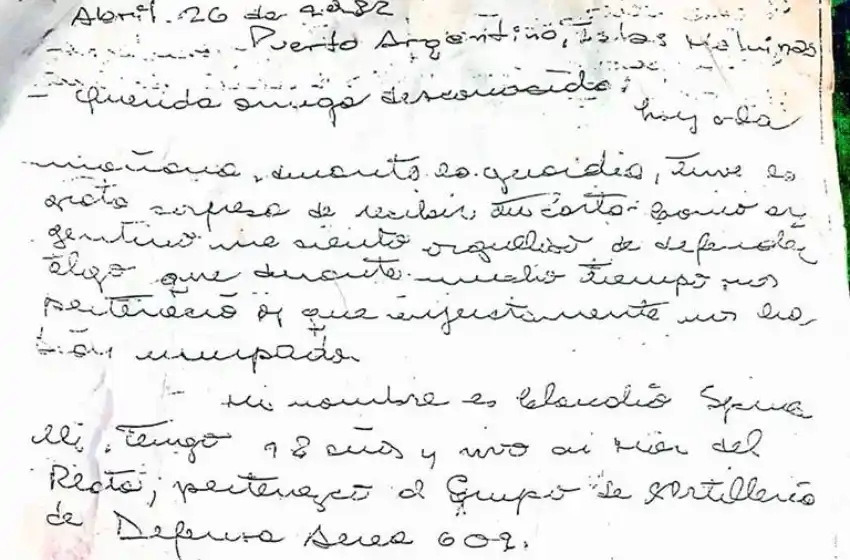 Abril. 26 de 1982
Puerto Argentino, Islas Malvinas
- Querida amiga desconocida:
hoy a la
mañana, durante la guardia, tuve la
grata sorpresa de recibir tu carta. Como ar
gentino me siento orgulloso de defender
algo que durante mucho tiempo nos
perteneció y que injustamente nos ha
bían usurpado.
Mi nombre es Claudio Spina
lli, tengo 18 años y vivo en Mar del
Plata, pertenezco al Grupo de Artillería
de Defensa Aerea 602.